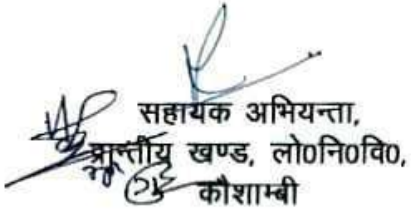 सहायक अभियन्ता,
प्रान्तीय खण्ड, लो0नि0वि0,
कौशाम्बी